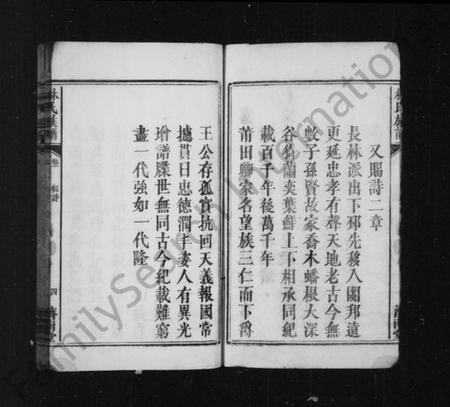 又賜詩二章
長林派出下邳先移入國邦遠
更延忠孝有聲天地老古今無
數子孫賢故家喬木蟠根大深
谷猗蘭奕葉鮮上下相承同紀
載百千年後萬千年
莆田卿家名望族三仁而下爵
王公存孤實抗回天義報國常
攄貫日忠德潤丰姿人有異光
增譜牒世無同古今紀載難窮
盡一代強如一代隆
林氏族譜
四
FamilySearch International